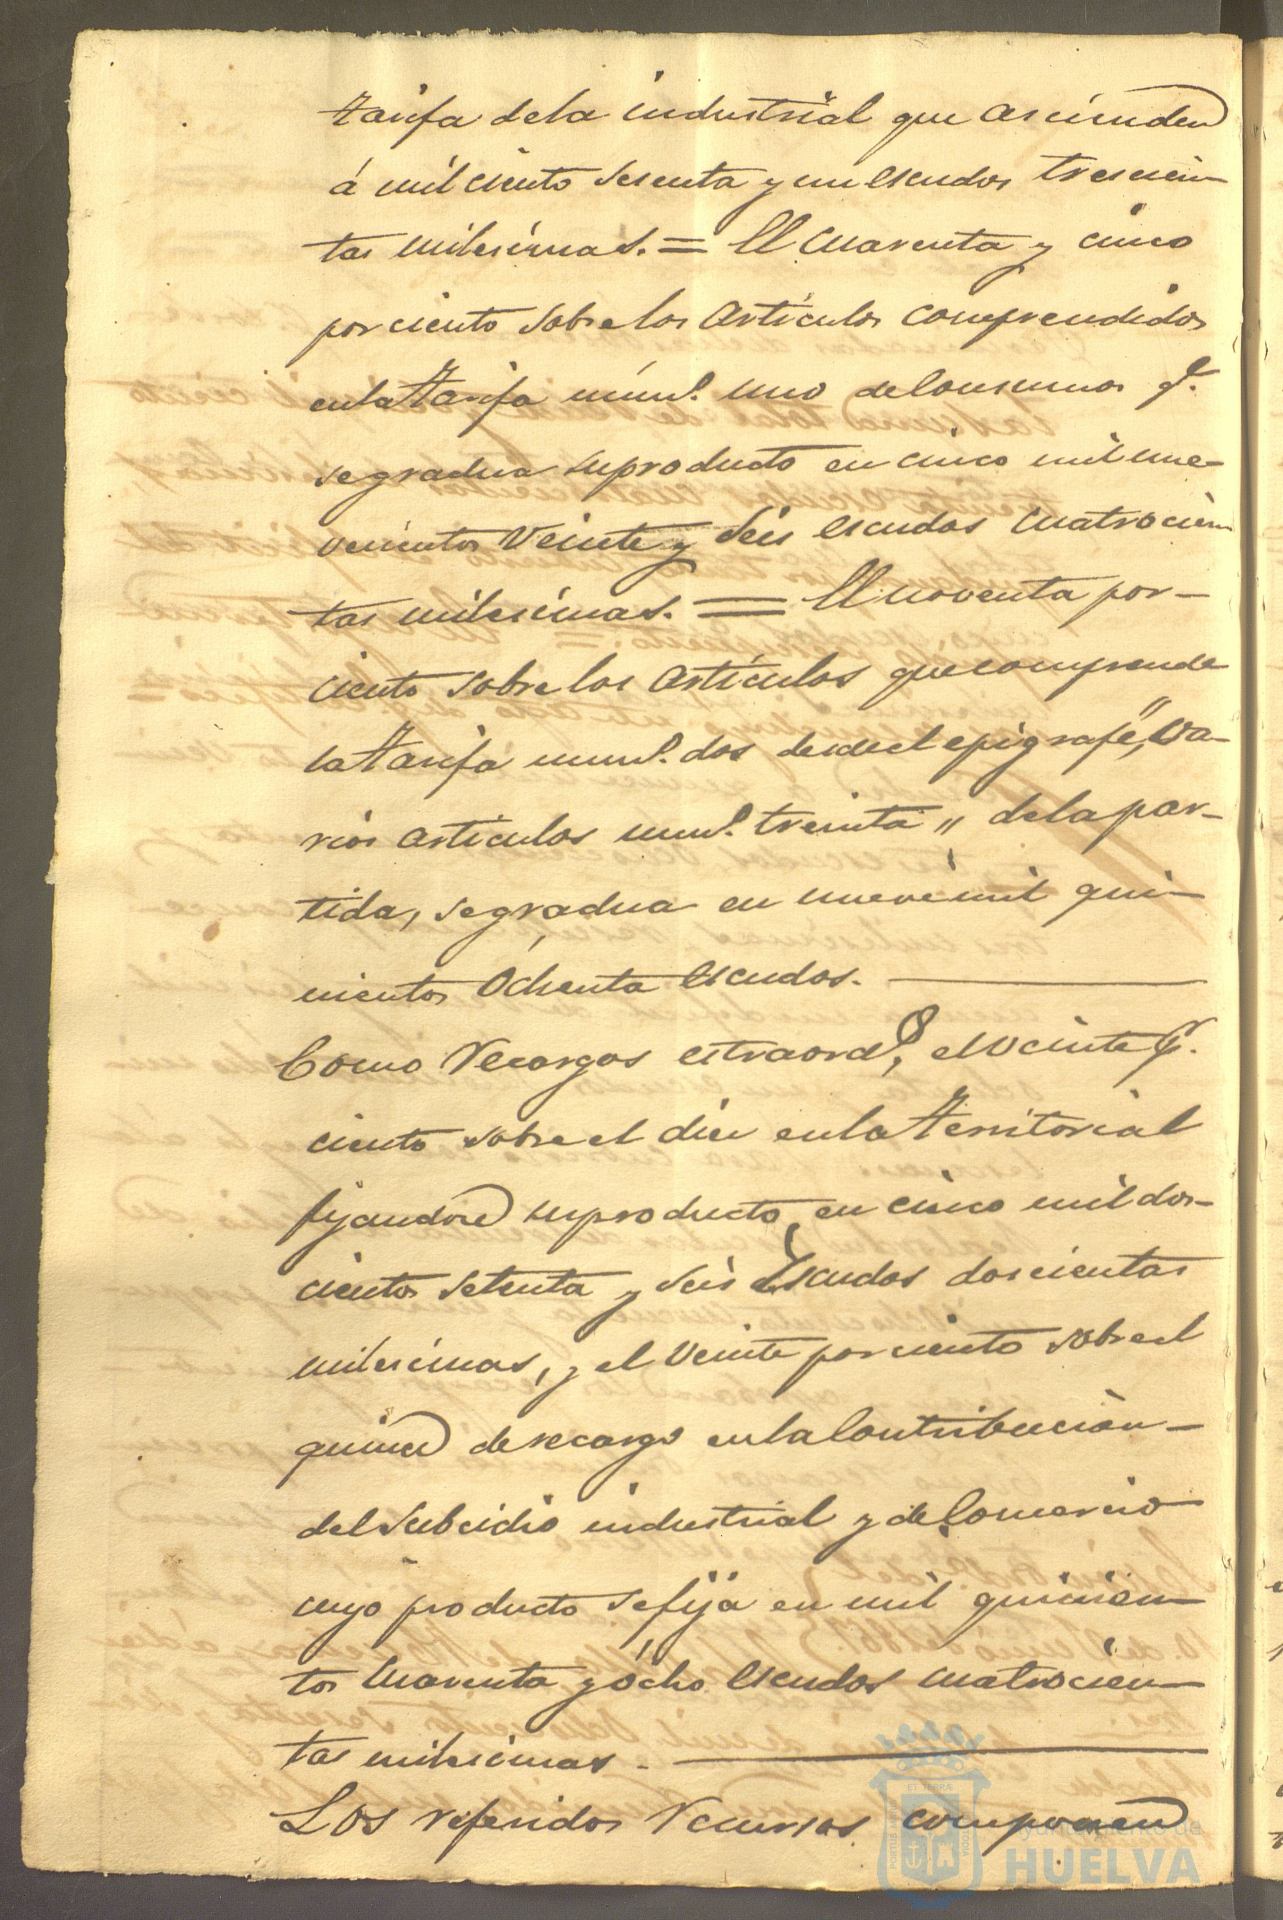 tarifa dela industrial que ascienden
á mil ciento sesenta y un escudos trescien-
tas milesimas. = El cuarenta y cinco
por ciento sobre los articulos comprendidos
enla tarifa núm.º uno de Consumos q.e
se gradua su producto en cinco mil nue-
vecientos veinte y seis escudos cuatrocien-
tas milesimas. = El noventa por-
ciento sobre los articulos que comprende
la tarifa num.º dos desde el epigrafe, "Va-
rios articulos num.º treinta" dela par-
tida, se gradua en nueve mil qui-
nientos óchenta escudos.
Como recargos estraord.os, el veinte p.r
ciento sobre el diez enla territorial
fijandose su producto, en cinco mil dos-
cientos setenta y seis Escudos doscientas
milesimas, y el veinte por ciento sobre el
quince de recargo enla Contribución-
del subcidio industrial y de Comercio
cuyo producto se fija en mil quinien-
tos cuarenta y ócho escudos cuatrocien-
tas milesimas.
Los referidos recursos componen
ET TERRAE
PORTUS MARIS
CUSTODIA
Ayuntamiento de
HUELVA